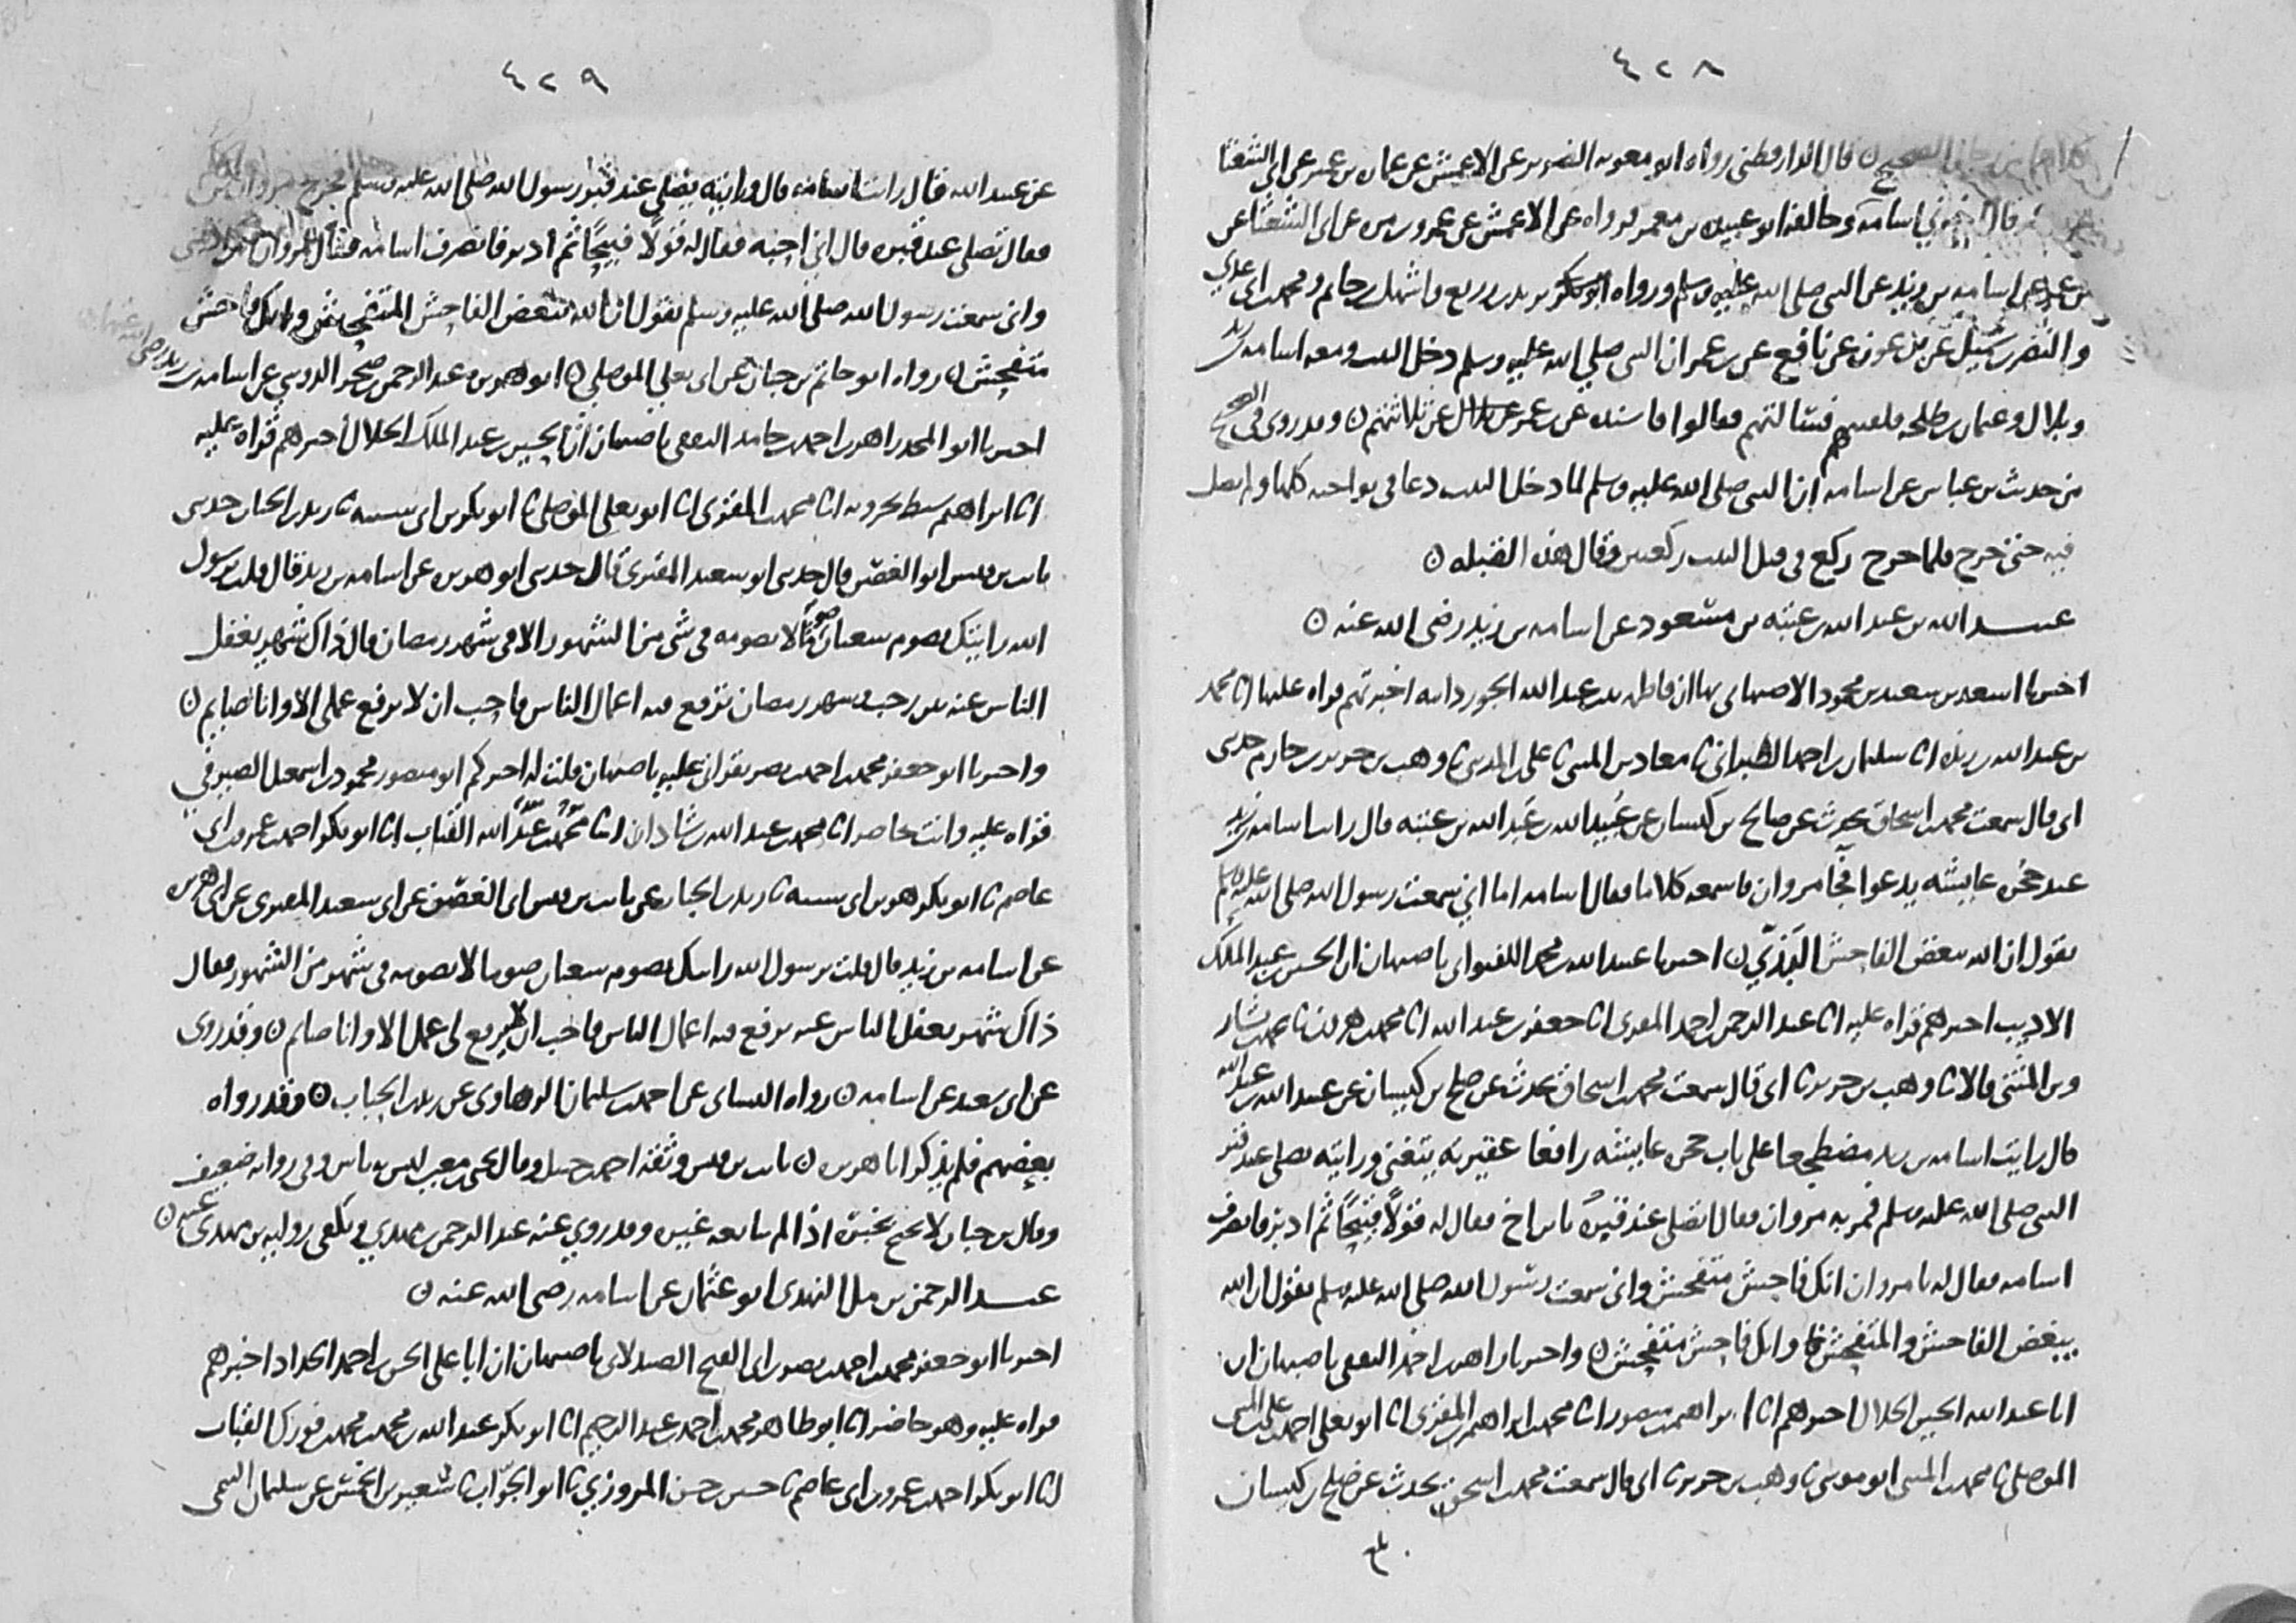 ٤٢٨
قال الدارقطني رواه ابو معويه الضرير عن الاعمش عن عماره بن عمير عن ابي الشعثا
قال اسامه وخالفه ابو عبيده بن معن فرواه عن الاعمش عن عمرو بن مره عن ابي الشعثا عن
عن اسامه بن زيد عن النبي صلى الله عليه وسلم ورواه يزيد بن زريع واشهل بن حاتم ومحمد بن ابي عدي
والنضر بن شميل عن بن عون عن نافع عن بن عمر ان النبي صلى الله عليه وسلم دخل البيت ومعه اسامه بن زيد
وبلال وعثمان بن طلحه فلقيهم فسالتهم فقالوا فاسنده عن بن عمر عن ثلاثتهم ن وقد روى في الصحيح
من حديث بن عباس عن اسامه ان النبي صلى الله عليه وسلم لما دخل البيت دعا في نواحيه كلها ولم يصل
فيه حتى خرج فلما خرج ركع في قبل البيت ركعتين وقال هذه القبله ن
عبيد الله بن عبد الله بن عتبه بن مسعود عن اسامه بن زيد رضى الله عنه ن
اخبرنا اسعد بن سعيد بن محمود الاصبهاني بها ان فاطمه بنت عبد الله الجوزدانيه اخبرتهم قراه عليها انا محمد
بن عبد الله بن ريذه انا سليمان بن احمد الطبراني ثا معاذ بن المثنى ثا علي بن المديني ثا وهب بن جرير بن حازم حدثني
ابي قال سمعت محمد بن اسحاق يحدث عن صالح بن كيسان عن عبيد الله بن عبد الله بن عتبه قال رايت اسامه بن زيد
عند حجره عايشه يدعوا فجا مروان فاسمعه كلاما فقال اسامه اما اني سمعت رسول الله صلى الله عليه وسلم
يقول ان الله يبغض الفاحش البذي ن اخبرنا عبد الله بن محمد اللفتواني باصبهان ان الحسين بن عبد الملك
الاديب اخبرهم قراه عليه انا عبد الرحمن بن احمد المقرى انا جعفر بن عبد الله انا محمد بن هرون ثا محمد بن بشار
وبن المثنى قالا ثا وهب بن جرير ثا ابي قال سمعت محمد بن اسحاق يحدث عن صالح بن كيسان عن عبيد الله بن عبد الله
قال رايت اسامه بن زيد مضطجعا على باب حجره عايشه رافعا عقيرته يتغنى ورايته يصلي عند قبر
النبي صلى الله عليه وسلم فمر به مروان فقال تصلي عند قبره فقال له قولا قبيحا ثم ادبر فانصرف
اسامه فقال له يا مروان انك فاحش متفحش واني سمعت رسول الله صلى الله عليه وسلم يقول ان الله
يبغض الفاحش والمتفحش وانك فاحش متفحش ن واخبرنا زاهر بن احمد الثقفي باصبهان ان
ابا عبد الله الحسين الخلال اخبرهم انا ابراهيم بن منصور انا محمد بن ابراهيم بن المقرى انا ابو يعلى احمد بن علي بن المثنى
الموصلي ثا محمد بن المثنى ابو موسى ثا وهب بن جرير ثا ابي قال سمعت محمد بن اسحق يحدث عن صالح بن كيسان
٤٢٩
عن عبيد الله قال رايت اسامه قال ورايته يصلي عند قبر رسول الله صلى الله عليه وسلم فخرج مروان بن
فقال تصلي عند قبره قال اني احبه فقال له قولا قبيحا ثم ادبر فانصرف اسامه فقال لمروان
واني سمعت رسول الله صلى الله عليه وسلم يقول ان الله يبغض الفاحش المتفحش وانك فاحش
متفحش ن رواه ابو حاتم بن حبان عن ابي يعلى الموصلي ن ابو هريره عبد الرحمن بن صخر الدوسي عن اسامه بن زيد رضى الله عنهما ن
اخبرنا ابو المجد زاهر بن احمد بن حامد الثقفي باصبهان ان الحسين بن عبد الملك الخلال اخبرهم قراه عليه
انا ابراهيم سبط بحرويه انا محمد بن المقرى انا ابو يعلى الموصلي ثا ابو بكر بن ابي شيبه ثا زيد بن الحباب حدثني
ثابت بن قيس ابو الغصن قال حدثني ابو سعيد المقبرى قال حدثني ابو هريره عن اسامه بن زيد قال قلت يرسول
الله رايتك تصوم شعبان صوما لا تصومه في شي من الشهور الا في شهر رمضان قال ذاك شهر يغفل
الناس عنه بين رجب وشهر رمضان ترفع فيه اعمال الناس فاحب ان لا يرفع عملي الا وانا صايم ن
واخبرنا ابو جعفر محمد بن احمد بن نصر بقراتي عليه باصبهان قلت له اخبركم ابو منصور محمود بن اسمعيل الصيرفي
قراه عليه وانت حاضر انا محمد بن عبد الله بن شاذان انا عبد الله القباب انا ابو بكر احمد بن عمرو بن ابي
عاصم ثا ابو بكر هو بن ابي شيبه ثا زيد بن الحباب عن ثابت بن قيس ابي الغصن عن ابي سعيد المقبرى عن ابي هريره
عن اسامه بن زيد قال قلت يرسول الله رايتك تصوم شعبان صوما لا تصومه في شهر من الشهور فقال
ذاك شهر يغفل الناس عنه يرفع فيه اعمال الناس فاحب ان لا يرفع لي عمل الا وانا صايم ن وقد روى
عن ابي سعيد عن اسامه ن رواه النساى عن احمد بن سليمان الرهاوى عن زيد بن الحباب ن وقد رواه
بعضهم فلم يذكر ابا هريره ن ثابت بن قيس وثقه احمد بن حنبل وقال يحيى بن معين ليس به باس وفي روايه ضعيف
وقال بن حبان لا يحتج بخبره اذا لم يتابعه غيره وقد روى عنه عبد الرحمن بن مهدي ويكفي روايه بن مهدي عنه ن
عبد الرحمن بن مل النهدى ابو عثمان عن اسامه رضى الله عنه ن
اخبرنا ابو جعفر محمد بن احمد بن نصر بن ابي الفتح الصيدلاني باصبهان ان ابا علي الحسن بن احمد الحداد اخبرهم
قراه عليه وهو حاضر انا ابو طاهر محمد بن احمد بن عبد الرحيم انا ابو بكر عبد الله بن محمد بن محمد بن فورك القباب
انا ابو بكر احمد بن عمرو بن ابي عاصم ثا حسين بن حسن المروزي ثا ابو الجواب ثا سعير بن الخمس عن سليمان التيمي